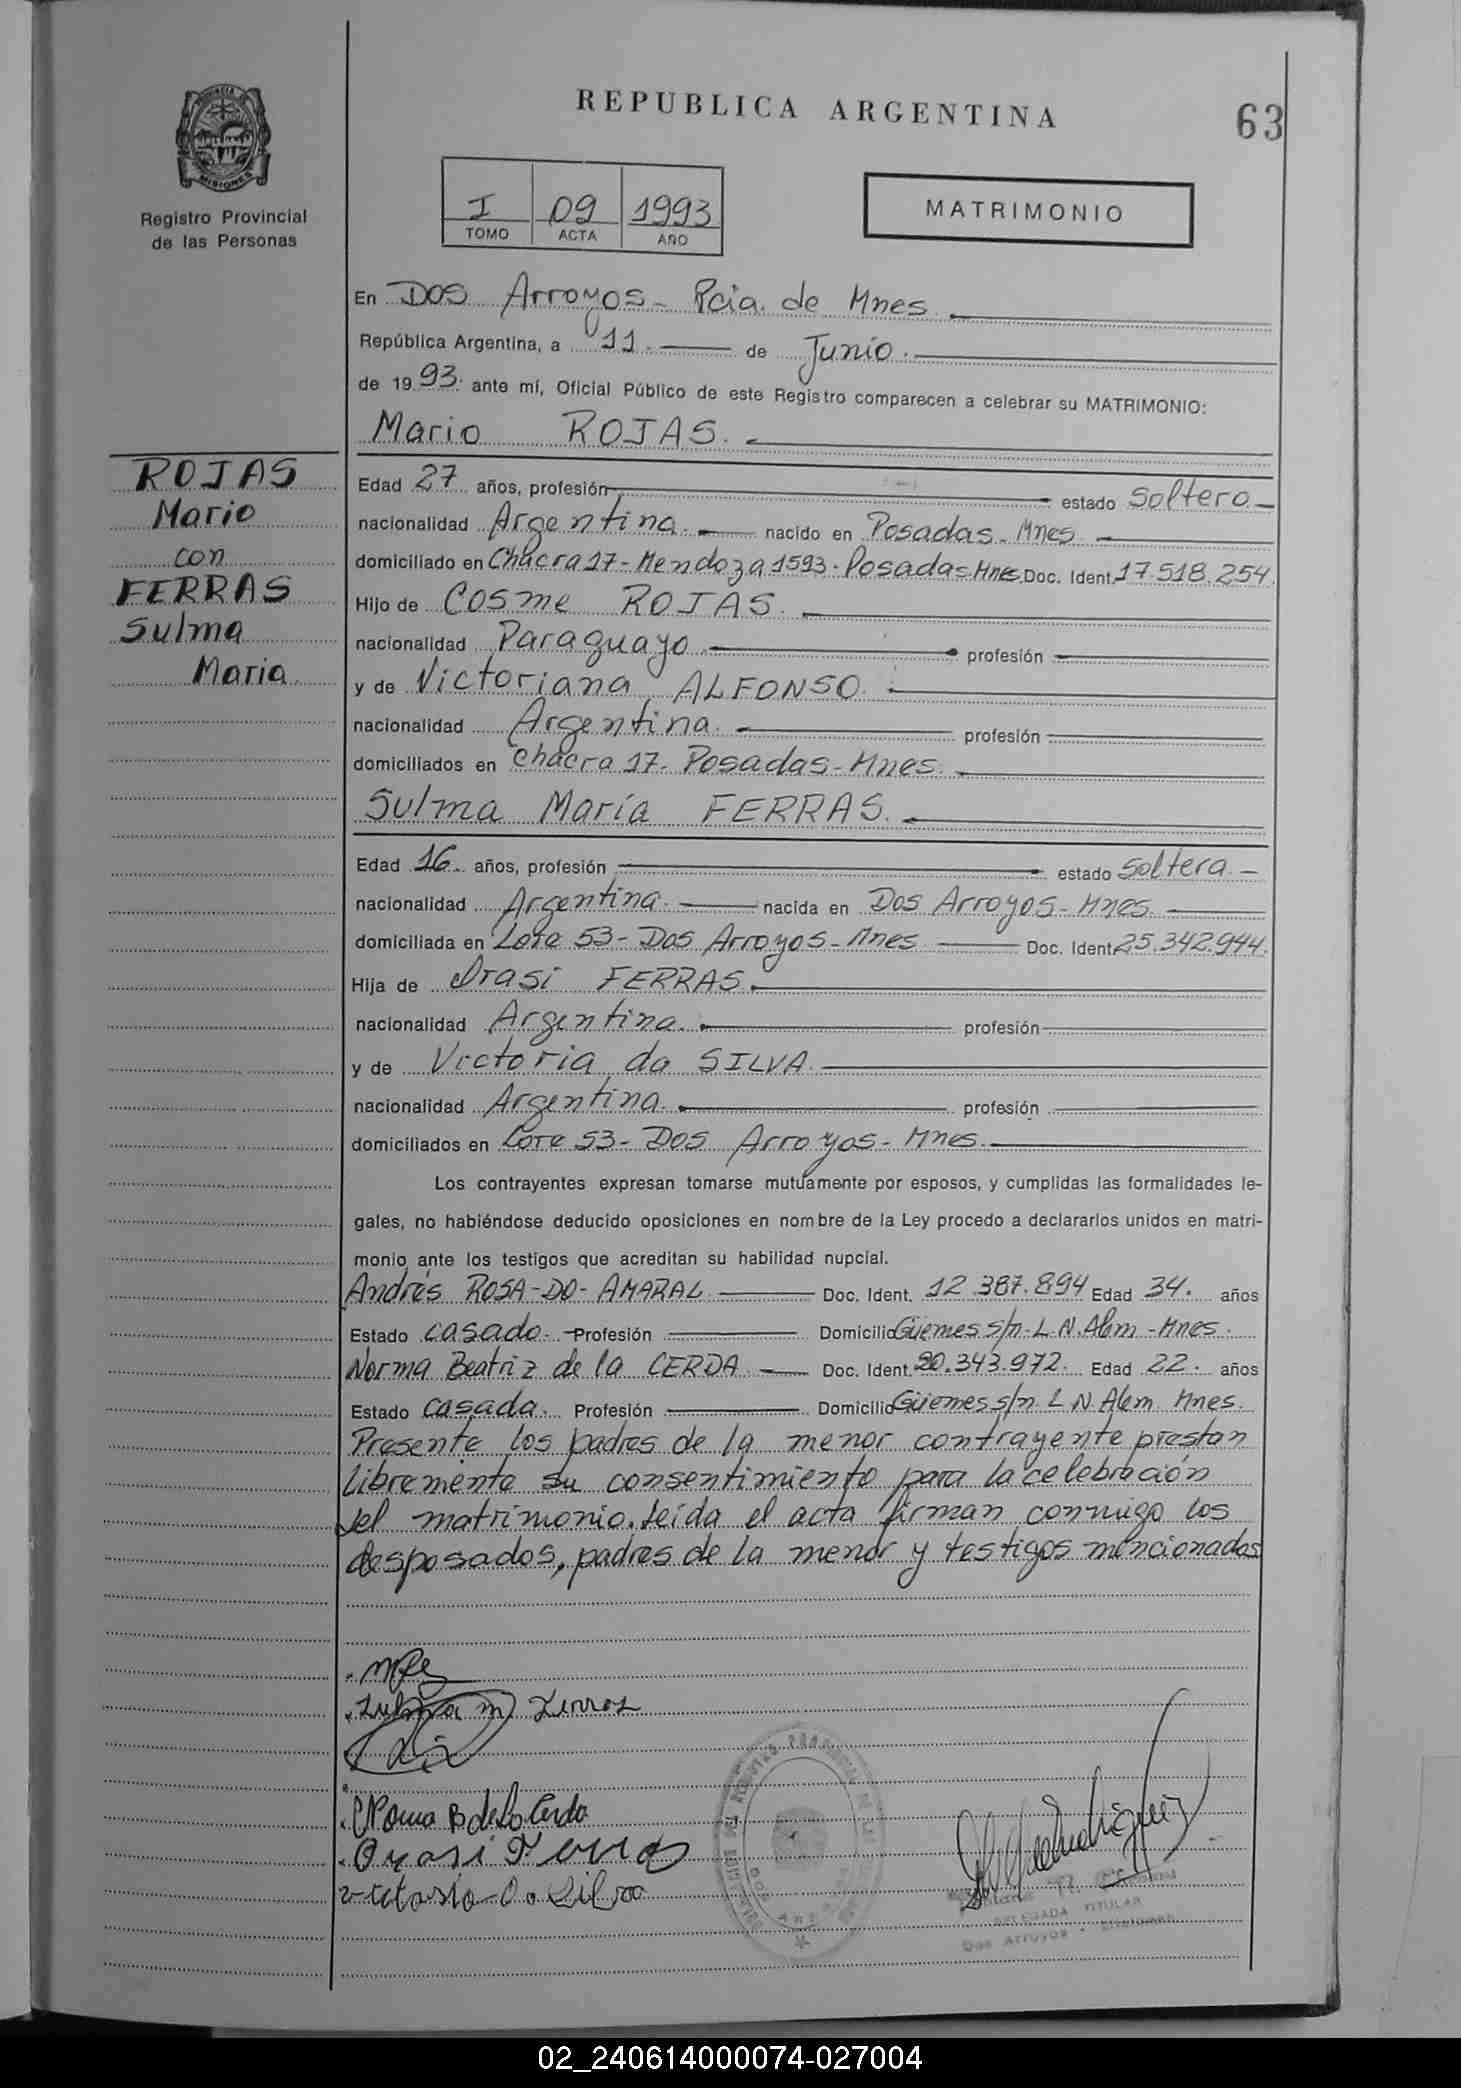 REPUBLICA ARGENTINA
63
PROVINCIA
MISIONES
Registro Provincial
de las Personas
I 09 1993
TOMO ACTA AÑO
MATRIMONIO
En Dos Arroyos - Pcia. de Mnes
República Argentina, a 11 de Junio.
de 1993. ante mí, Oficial Público de este Registro comparecen a celebrar su MATRIMONIO:
Mario ROJAS.
ROJAS
Mario
con
FERRAS
Sulma
Maria.
Edad 27 años, profesión estado Soltero.-
nacionalidad Argentina. nacido en Posadas - Mnes.
domiciliado en Chacra 17 - Mendoza 1593 - Posadas Mnes. Doc. Ident. 17.518.254.
Hijo de Cosme ROJAS.
nacionalidad Paraguayo profesión
y de Victoriana ALFONSO.
nacionalidad Argentina. profesión
domiciliados en Chacra 17 - Posadas - Mnes.
Sulma María FERRAS.
Edad 16 años, profesión estado Soltera.-
nacionalidad Argentina. nacida en Dos Arroyos - Mnes.
domiciliada en Lote 53 - Dos Arroyos - Mnes Doc. Ident. 25.342.944.
Hija de Orasi FERRAS.
nacionalidad Argentina. profesión
y de Victoria da SILVA.
nacionalidad Argentina. profesión
domiciliados en Lote 53 - Dos Arroyos - Mnes.
Los contrayentes expresan tomarse mutuamente por esposos, y cumplidas las formalidades le-
gales, no habiéndose deducido oposiciones en nombre de la Ley procedo a declararlos unidos en matri-
monio ante los testigos que acreditan su habilidad nupcial.
Andrés ROSA-DO-AMARAL Doc. Ident. 12.387.894 Edad 34. años
Estado casado. Profesión Domicilio Güemes s/n - L.N. Alem - Mnes.
Norma Beatriz de la CERDA Doc. Ident. 20.343.972. Edad 22. años
Estado casada. Profesión Domicilio Güemes s/n. L N. Alem Mnes.
Presente los padres de la menor contrayente prestan
libremente su consentimiento para la celebración
del matrimonio. Leída el acta firman conmigo los
desposados, padres de la menor y testigos mencionados
Zulma m Ferras
Norma B de la Cerda
Orasi Ferras
victoria Da Silva
DELEGADA TITULAR
Dos Arroyos - Misiones
02_240614000074-027004